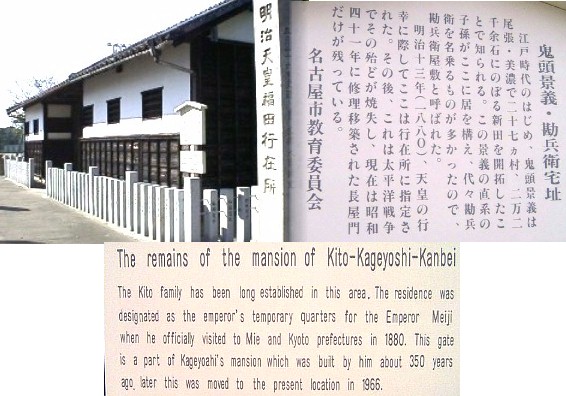 明治天皇福田行在所
鬼頭景義・勘兵衛宅址
江戸時代のはじめ、鬼頭景義は
尾張・美濃で二十七ヵ村、二万二
千余石にのぼる新田を開拓したこ
とで知られる。この景義の直系の
子孫がここに居を構え、代々勘兵
衛を名乗るものが多かったので、
勘兵衛屋敷と呼ばれた。
明治十三年(一八八〇)、天皇の行
幸に際してここは行在所に指定さ
れた。その後、これは太平洋戦争
でその殆どが焼失し、現在は昭和
四十一年に修理移築された長屋門
だけが残っている。
名古屋市教育委員会
The remains of the mansion of Kito-Kageyoshi-Kanbei
The Kito family has been long established in this area. The residence was
designated as the emperor's temporary quarters for the Emperor Meiji
when he officially visited to Mie and Kyoto prefectures in 1880. This gate
is a part of Kageyoahi's mansion which was built by him about 350 years
ago, later this was moved to the present location in 1966.